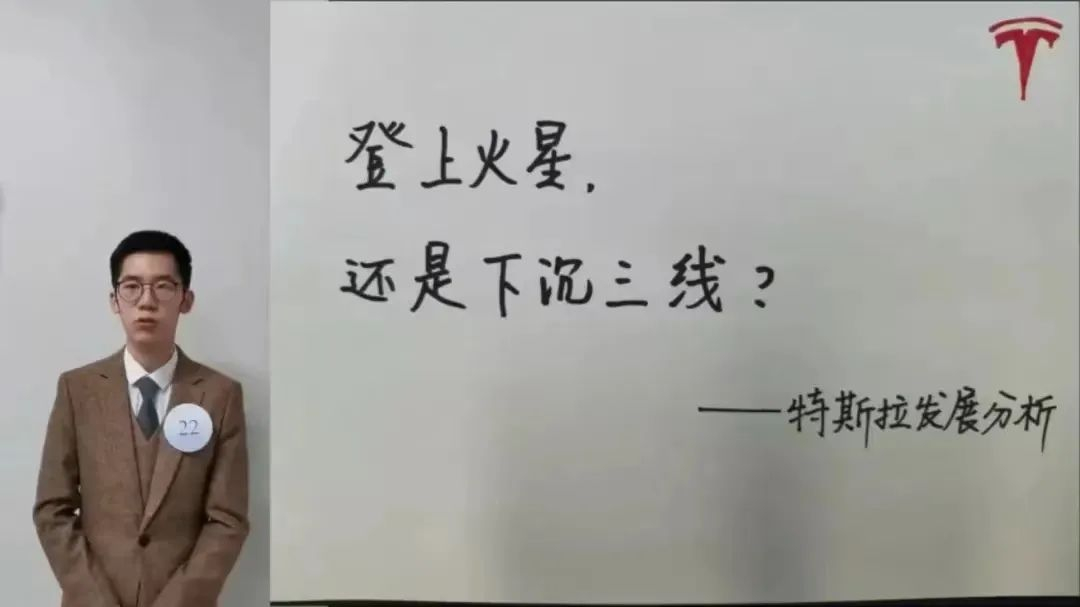 登上火星,
还是下沉三线?
——特斯拉发展分析
22